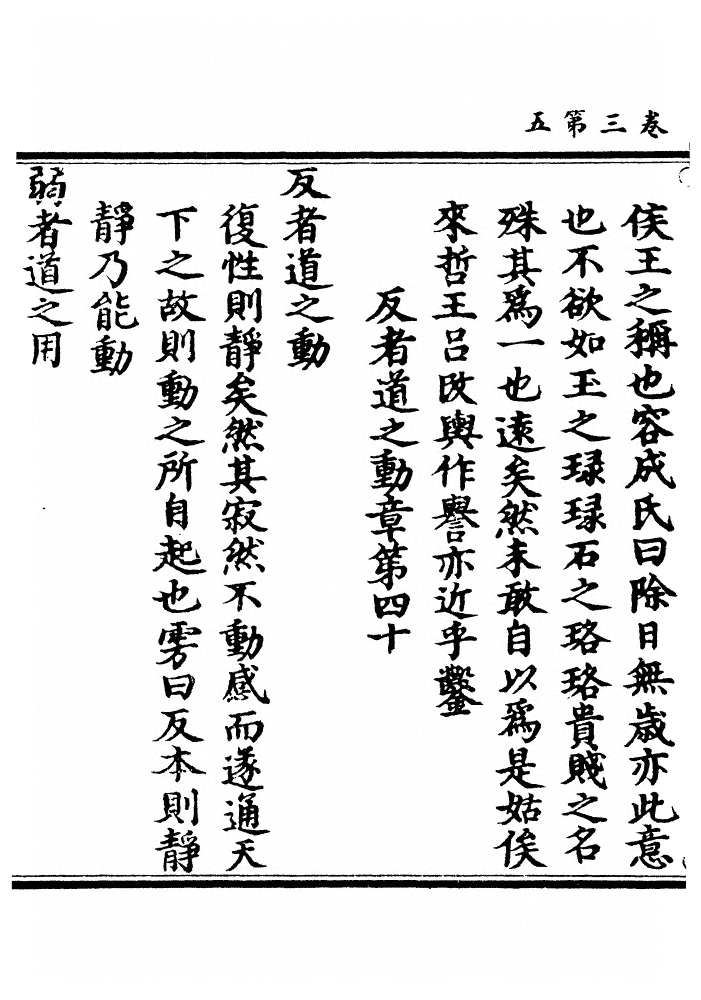 卷三第五
侯王之稱也容成氏曰除日無歲亦此意
也不欲如玉之琭琭石之珞珞貴賤之名
殊其爲一也遠矣然未敢自以爲是姑俟
來哲王呂改輿作譽亦近乎鑿
反者道之動章第四十
反者道之動
復性則靜矣然其寂然不動感而遂通天
下之故則動之所自起也雱曰反本則靜
靜乃能動
弱者道之用